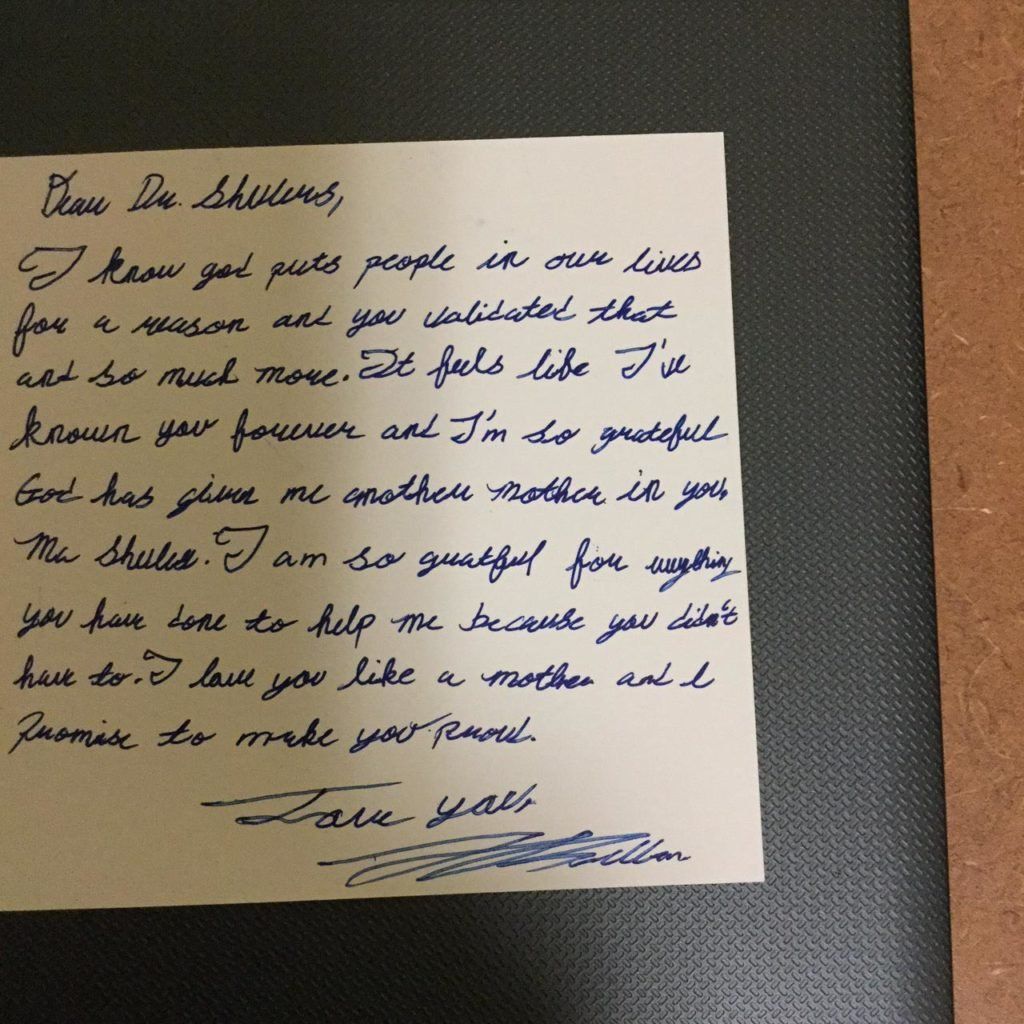 Dear Dr. Shulers,
I know god puts people in our lives
for a reason and you validated that
and so much more. It feels like I've
known you forever and I'm so grateful
God has given me another mother in you,
Ma Shuler. I am so grateful for everything
you have done to help me because you didn't
have to. I love you like a mother and I
Promise to make you proud.
Love you,